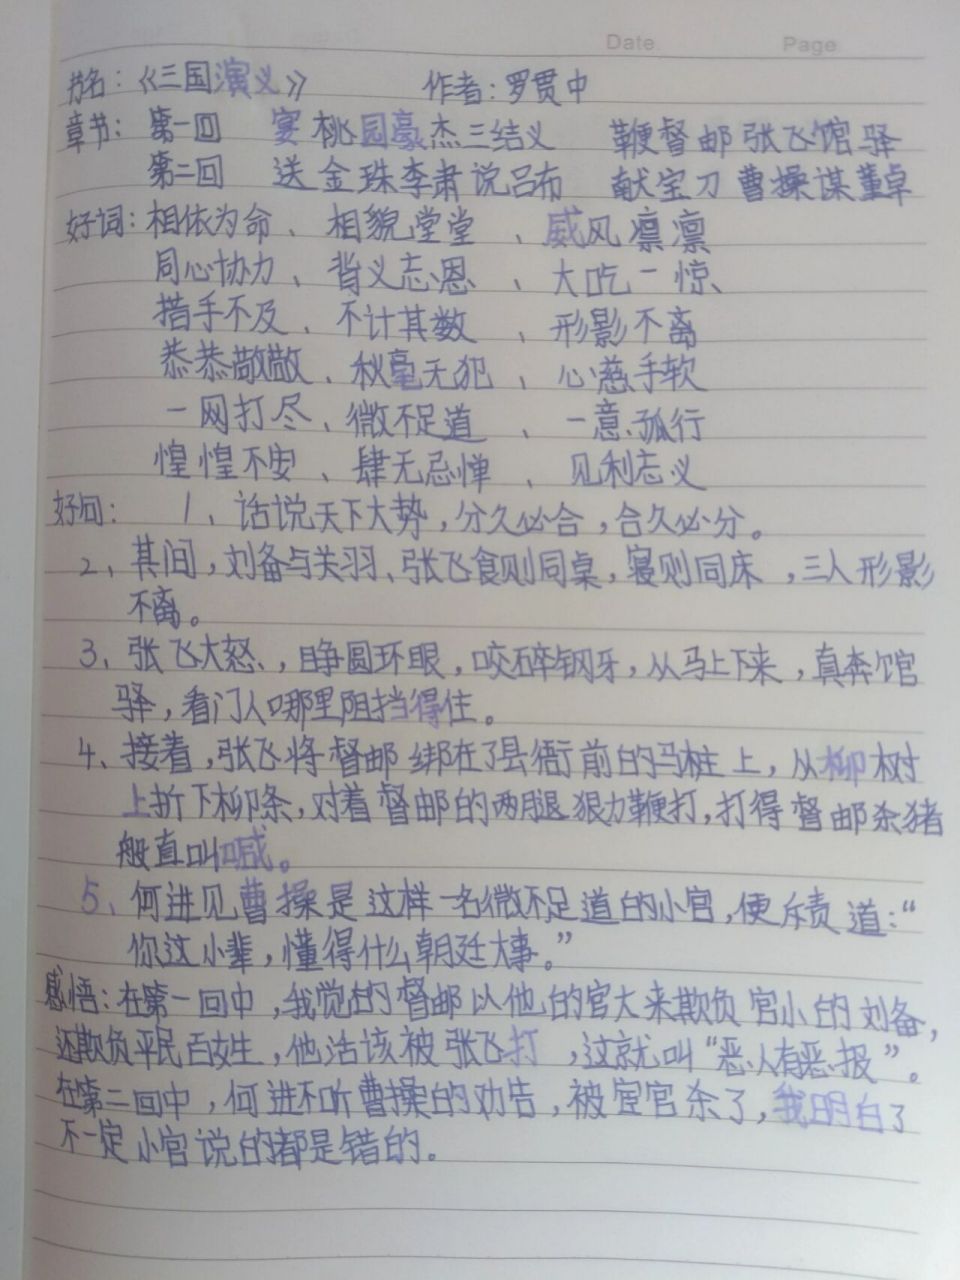 Date Page
书名：《三国演义》 作者：罗贯中
章节：第一回 宴桃园豪杰三结义 鞭督邮张飞馆驿
第二回 送金珠李肃说吕布 献宝刀曹操谋董卓
好词：相依为命、相貌堂堂、威风凛凛
同心协力、背义忘恩、大吃一惊、
措手不及、不计其数、形影不离
恭恭敬敬、秋毫无犯、心慈手软
一网打尽、微不足道、一意孤行
惶惶不安、肆无忌惮、见利忘义
好句：1、话说天下大势，分久必合，合久必分。
2、其间，刘备与关羽、张飞食则同桌，寝则同床，三人形影
不离。
3、张飞大怒、，睁圆环眼，咬碎钢牙，从马上下来，真奔馆
驿，看门人哪里阻挡得住。
4、接着，张飞将督邮绑在了县衙前的马桩上，从柳树
上折下柳条，对着督邮的两腿狠力鞭打，打得督邮杀猪
般直叫喊。
5、何进见曹操是这样一名微不足道的小官，便斥责道：“
你这小辈，懂得什么朝廷大事。”
感悟：在第一回中，我觉的督邮以他的官大来欺负官小的刘备，
还欺负平民百姓，他活该被张飞打，这就叫“恶人有恶报”。
在第二回中，何进不听曹操的劝告，被宦官杀了，我明白了
不一定小官说的都是错的。